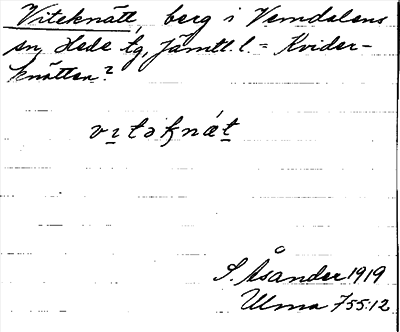 Viteknätt, berg i Vemdalens
sn, Hede tg, Jämtl. l. = Kvider-
knätten?
vitəknät
S. Åsander 1919
Ulma 755:12